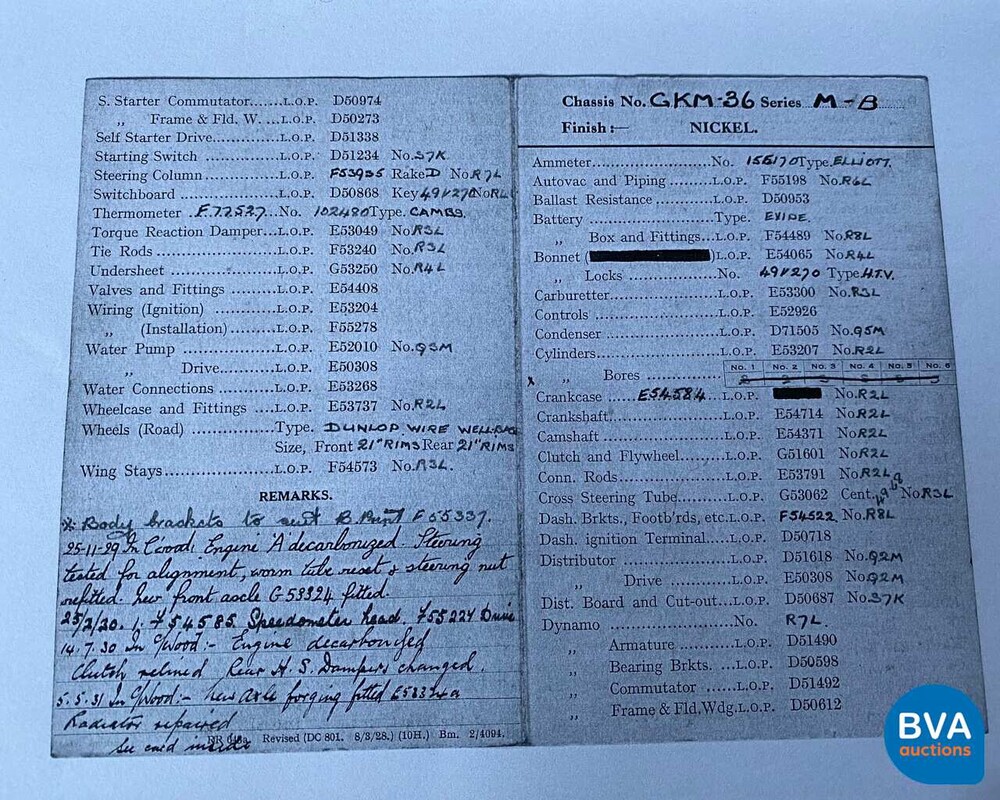 S. Starter Commutator......L.O.P. D50974
„ Frame & Fld. W. ...L.O.P. D50273
Self Starter Drive...L.O.P. D51338
Starting Switch ...L.O.P. D51234 No. S7K
Steering Column ...L.O.P. F53935 Rake D No R7L
Switchboard ...L.O.P. D50868 Key 491270 No RL
Thermometer F.77527. No. 102480 Type. CAMBS.
Torque Reaction Damper...L.O.P. E53049 No. R3L
Tie Rods ...L.O.P. F53240 No. R3L
Undersheet ...L.O.P. G53250 No. R4L
Valves and Fittings ...L.O.P. E54408
Wiring (Ignition) ...L.O.P. E53204
„ (Installation)...L.O.P. F55278
Water Pump ...L.O.P. E52010 No. Q5M
„ Drive...L.O.P. E50308
Water Connections ...L.O.P. E53268
Wheelcase and Fittings ...L.O.P. E53737 No. R2L
Wheels (Road) ...Type. DUNLOP WIRE WELL-BASE
Size, Front 21" RIMS Rear 21" RIMS
Wing Stays...L.O.P. F54573 No. R3L.
REMARKS.
* Body brackets to suit B.Print F55337.
25-11-29 In C'wood; Engine 'A' decarbonized. Steering
tested for alignment, worm tube reset & steering nut
refitted. New front axle G53324 fitted.
F54585 Speedometer head. F55224 Drive
14.7.30 In C/Wood:- Engine decarbonised
Clutch relined Rear H. S. Dampers changed.
5.5.31 In C/Wood:- New Axle forging fitted
Radiator repaired
See card inside
Revised (DC 801. 8/3/28.) (10H.) Bm. 2/4094.
Chassis No. GKM-36 Series M-B
Finish :— NICKEL.
Ammeter...No. 155170 Type. ELLIOTT.
Autovac and Piping ...L.O.P. F55198 No. R6L
Ballast Resistance ...L.O.P. D50953
Battery ...Type. EXIDE.
„ Box and Fittings...L.O.P. F54489 No. R8L
Bonnet ( )L.O.P. E54065 No R4L
„ Locks ...No. 491270 Type. H.T.V.
Carburetter...L.O.P. E53300 No. R3L
Controls ...L.O.P. E52926
Condenser ...L.O.P. D71505 No. Q5M
Cylinders...L.O.P. E53207 No. R2L
x „ Bores ... No. 1 No. 2 No. 3 No. 4 No. 5 No. 6
Crankcase ...E54584...L.O.P. No. R2L
Crankshaft...L.O.P. E54714 No. R2L
Camshaft...L.O.P. E54371 No R2L
Clutch and Flywheel...L.O.P. G51601 No R2L
Conn. Rods...L.O.P. E53791 No R2L
Cross Steering Tube...L.O.P. G53062 Cent. No R3L
Dash. Brkts., Footb'rds, etc.L.O.P. F54522 No. R8L
Dash. ignition Terminal...L.O.P. D50718
Distributor ...L.O.P. D51618 No. Q2M
„ Drive ...L.O.P. E50308 No Q2M
Dist. Board and Cut-out...L.O.P. D50687 No S7K
Dynamo ...No. R7L.
„ Armature ...L.O.P. D51490
„ Bearing Brkts. ...L.O.P. D50598
„ Commutator ...L.O.P. D51492
„ Frame & Fld. Wdg. L.O.P. D50612
BVA
auctions